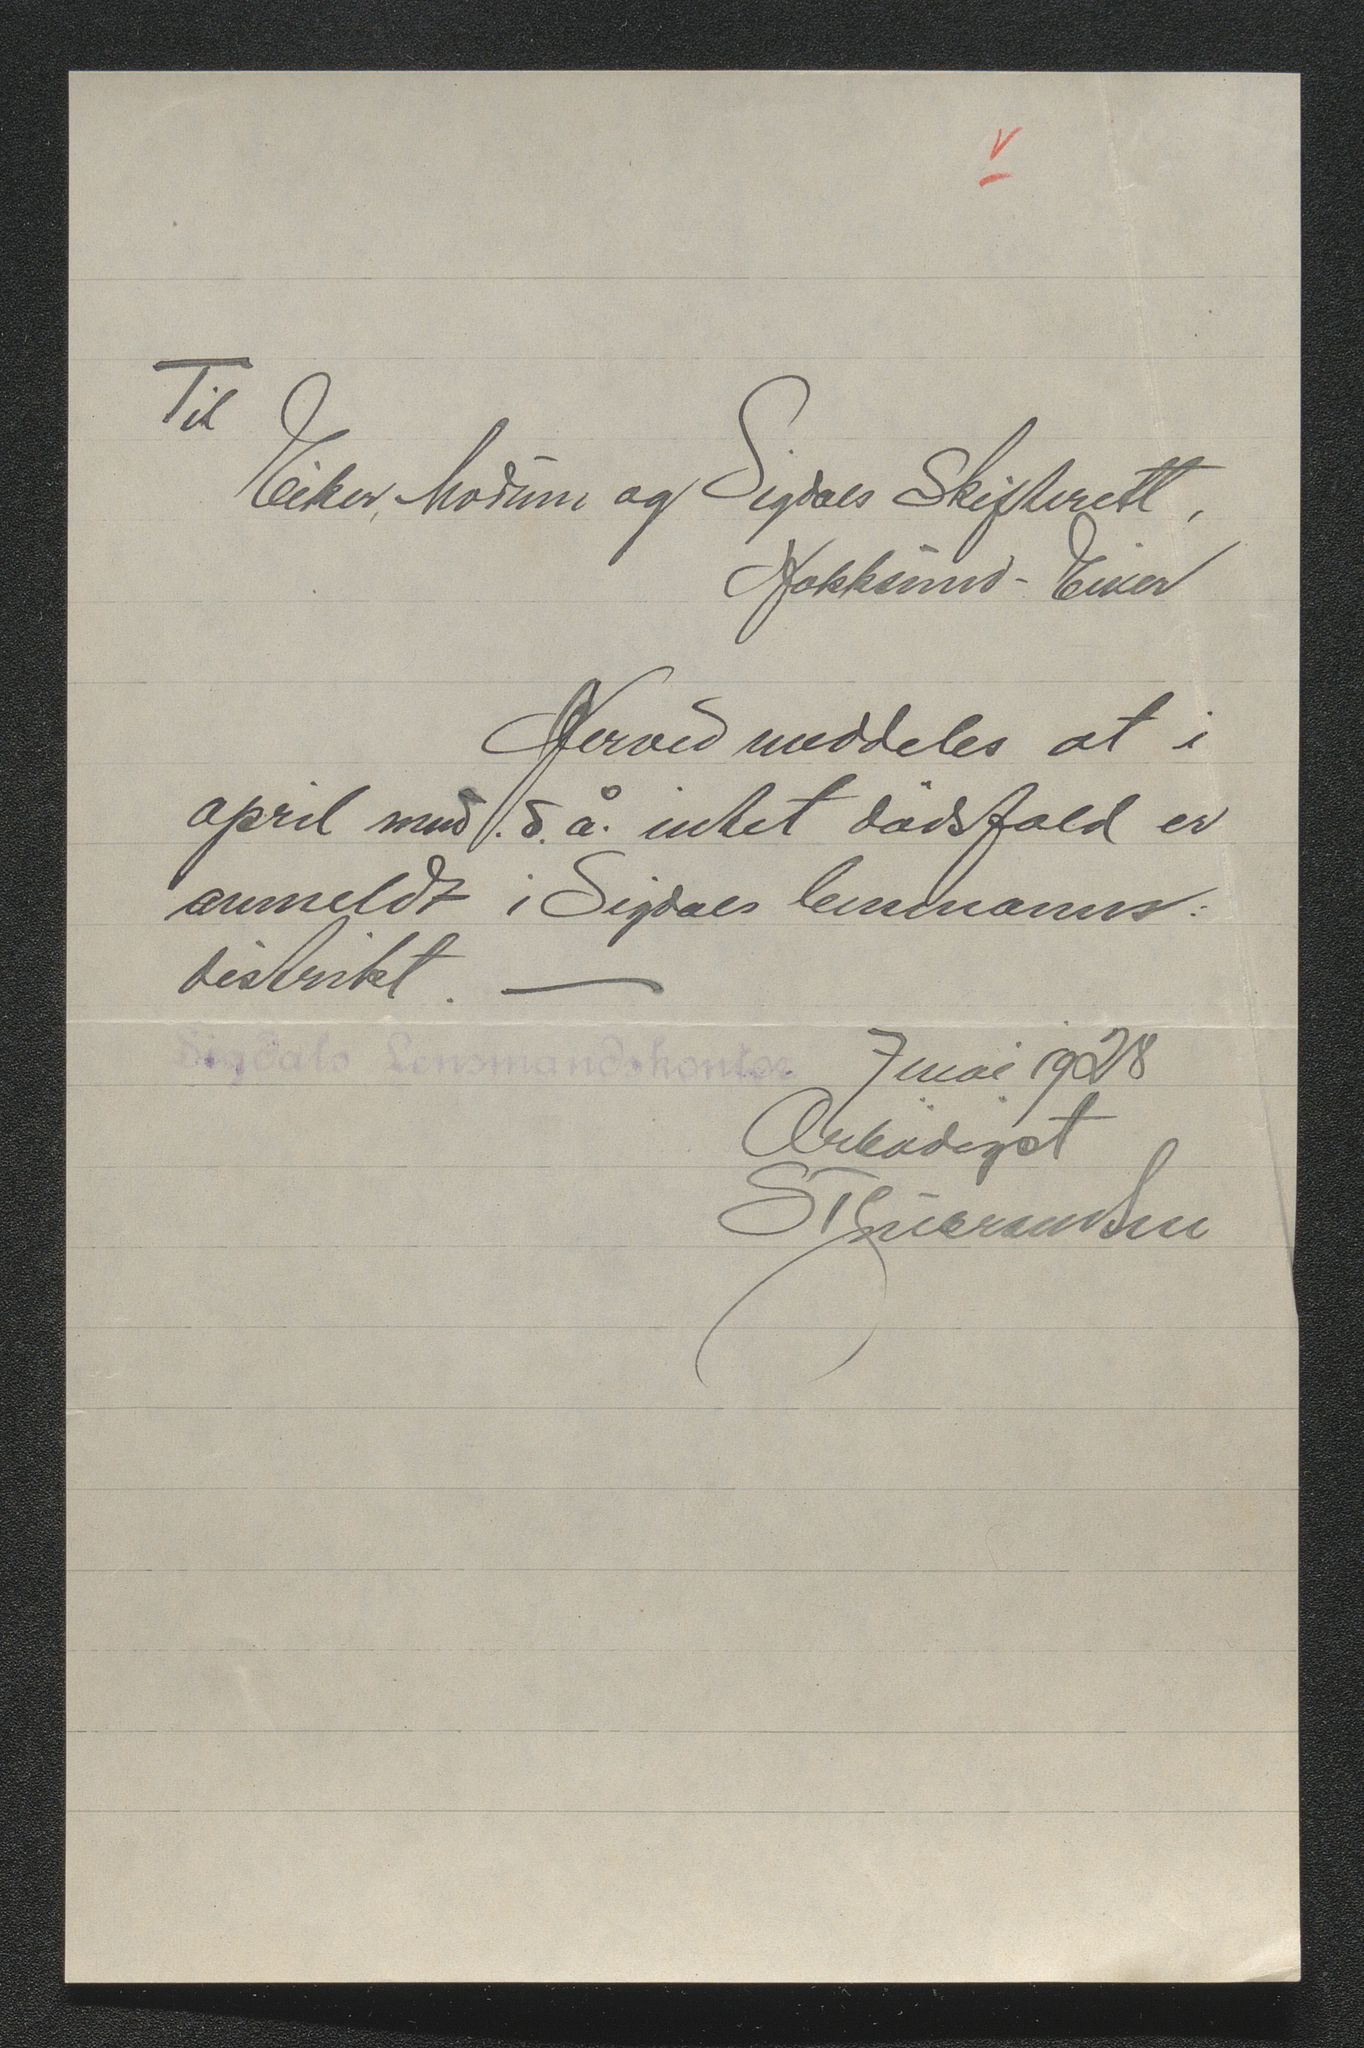 V
Til
Eiker, Modum og Sigdals Skifterett,
Hokksund - Eiker
Herved meddeles at i
april mnd. d. å. intet dødsfald er
anmeldt i Sigdals lensmanns-
distrikt. —
Sigdals Lensmandskontor 7 mai 1928
Ærbødigst